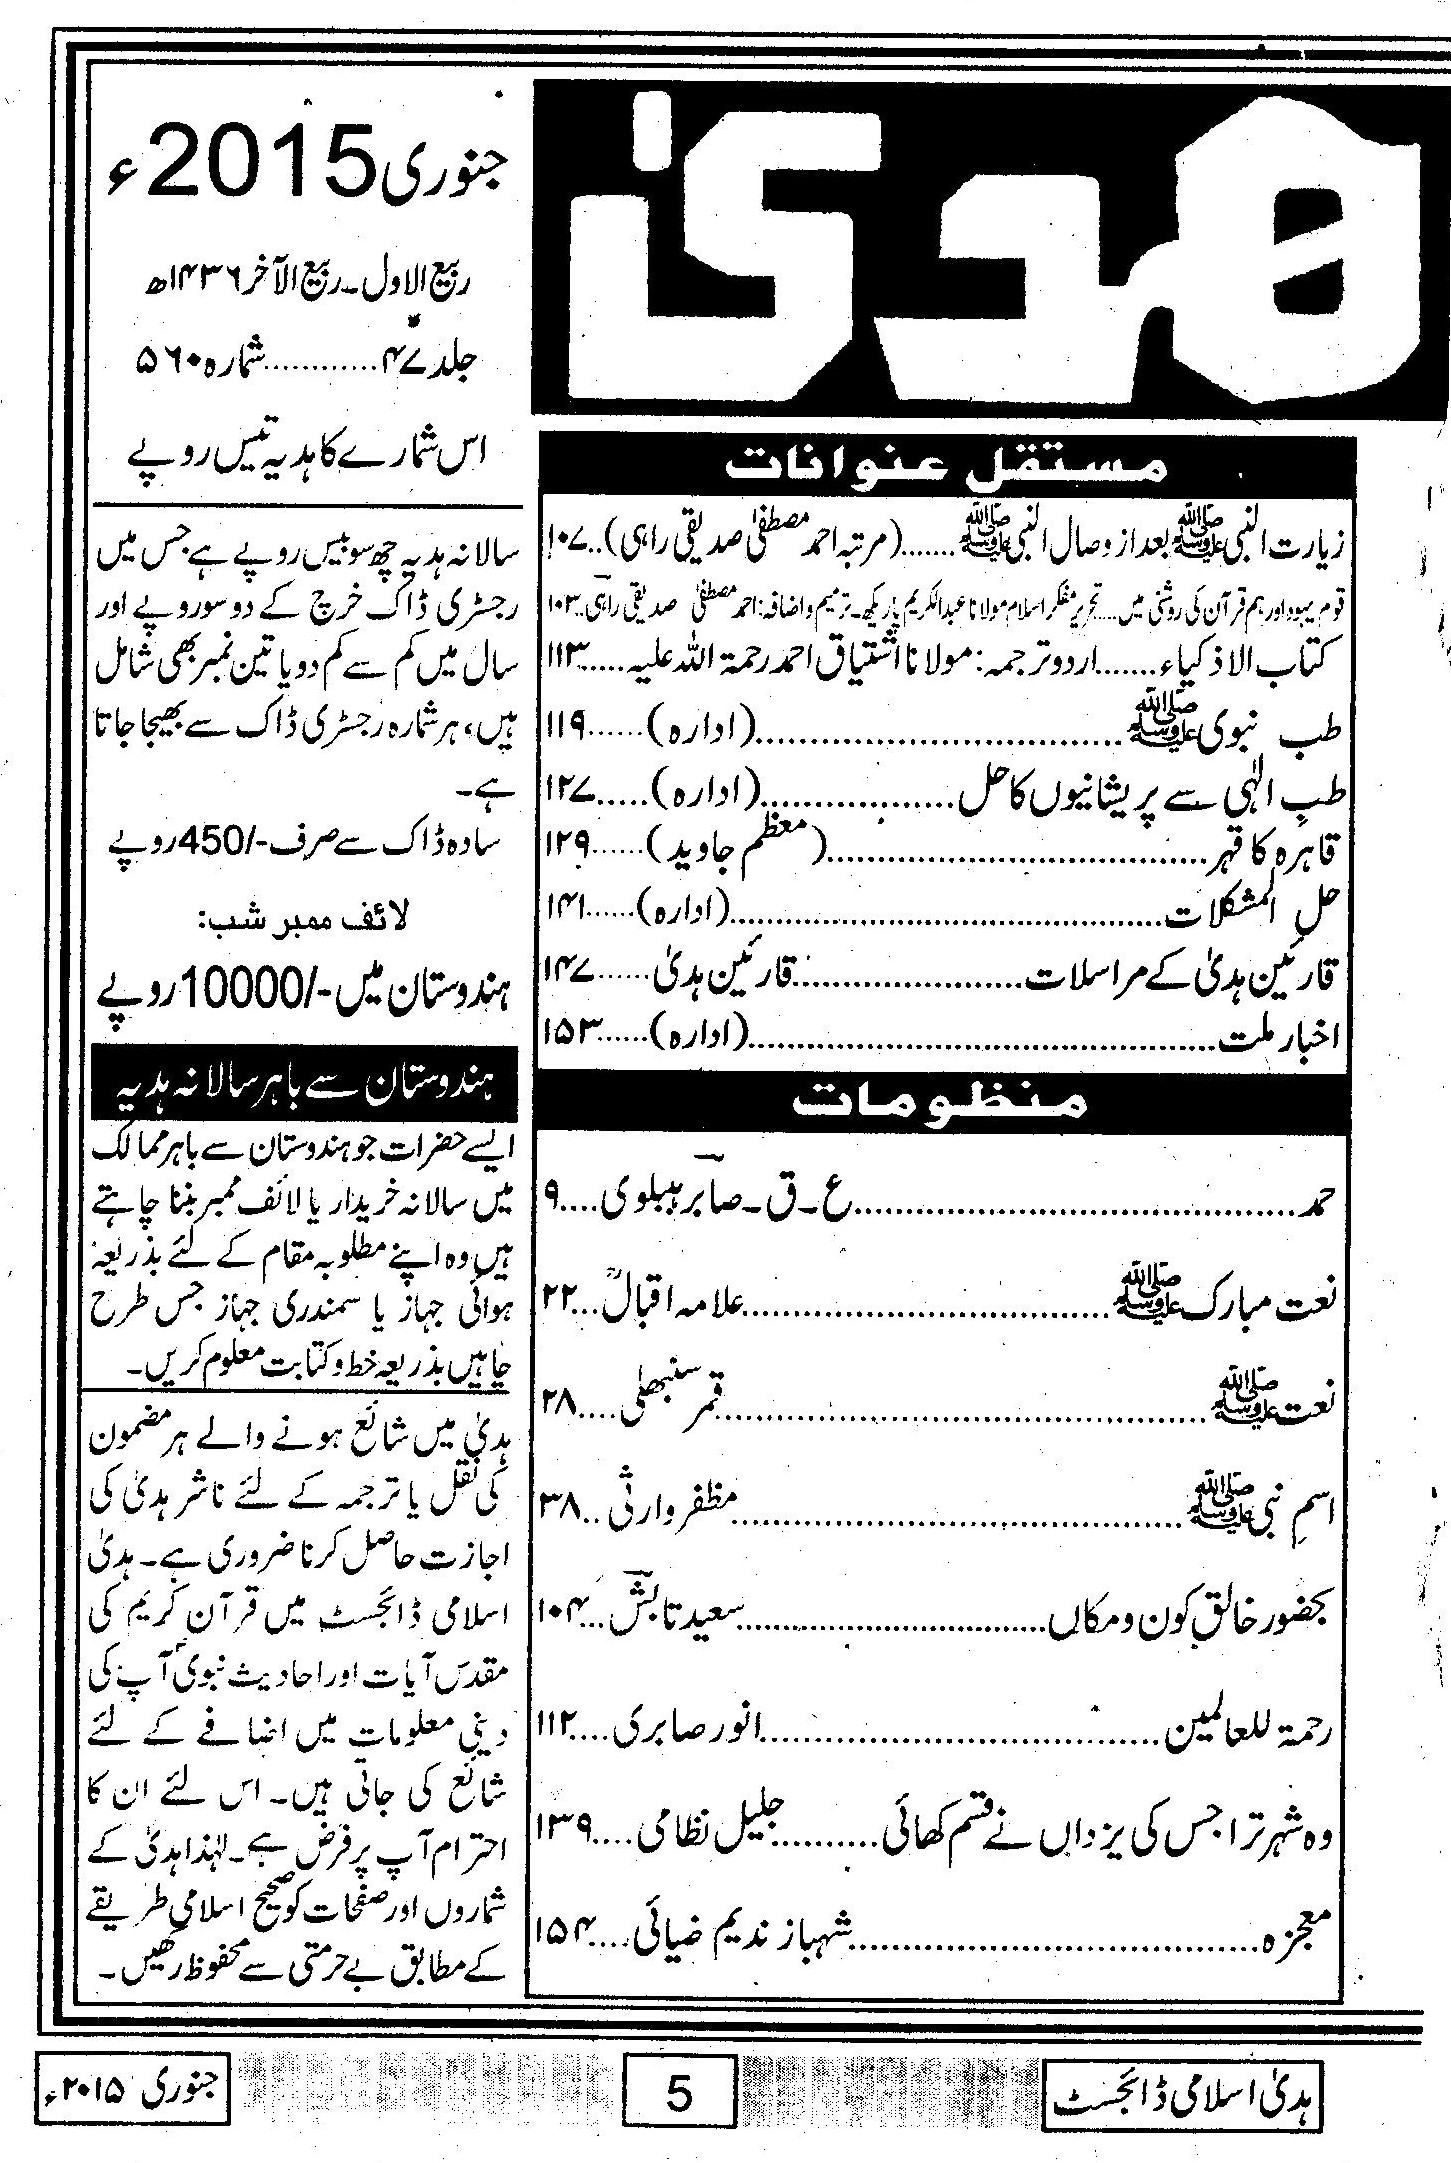 ھدیٰ
مستقل عنوانات
زیارت النبی ﷺ بعد از وصال النبی ﷺ.......(مرتبہ احمد مصطفیٰ صدیقی راہی)..۱۰۷
قوم یہود اور ہم قرآن کی روشنی میں.....تحریر مفکر اسلام مولانا عبدالکریم پاریکھ۔ ترمیم و اضافہ: احمد مصطفیٰ صدیقی راہی..۱۰۳
کتاب الاذکیاء.......اردو ترجمہ: مولانا اشتیاق احمد رحمۃ اللہ علیہ.....۱۱۳
طب نبوی ﷺ......................................(ادارہ)......۱۱۹
طبِ الٰہی سے پریشانیوں کا حل....................(ادارہ).....۱۲۷
قاہرہ کا قہر.......................................(معظم جاوید)......۱۲۹
حل المشکلات............................................(ادارہ)......۱۴۱
قارئین ہدیٰ کے مراسلات.......................قارئین ہدیٰ......۱۴۷
اخبار ملت................................................(ادارہ)......۱۵۳
منظومات
حمد.............................................ع۔ق۔صابر ہیبلوی....۹
نعت مبارک ﷺ......................................علامہ اقبالؒ...۲۲
نعت ﷺ..................................................قمر سنبھلی....۲۸
اسمِ نبی ﷺ..............................................مظفر وارثی..۳۸
بحضور خالقِ کون و مکاں................................سعید تابش...۱۰۴
رحمۃ للعالمین.........................................انور صابری....۱۱۲
وہ شہر ترا جس کی یزداں نے قسم کھائی...........جلیل نظامی....۱۳۹
معجزہ..........................................شہباز ندیم ضیائی....۱۵۴
جنوری 2015ء
ربیع الاول۔ ربیع الآخر ۱۴۳۶ھ
جلد ۴۷............شمارہ ۵۶۰
اس شمارے کا ہدیہ تیس روپے
سالانہ ہدیہ چھ سو بیس روپے ہے جس میں
رجسٹری ڈاک خرچ کے دو سو روپے اور
سال میں کم سے کم دو یا تین نمبر بھی شامل
ہیں، ہر شمارہ رجسٹری ڈاک سے بھیجا جاتا
ہے۔
سادہ ڈاک سے صرف -/450 روپے
لائف ممبر شب:
ہندوستان میں -/10000 روپے
ہندوستان سے باہر سالانہ ہدیہ
ایسے حضرات جو ہندوستان سے باہر ممالک
میں سالانہ خریدار یا لائف ممبر بننا چاہتے
ہیں وہ اپنے مطلوبہ مقام کے لئے بذریعہ
ہوائی جہاز یا سمندری جہاز جس طرح
چاہیں بذریعہ خط و کتابت معلوم کریں۔
ہدیٰ میں شائع ہونے والے ہر مضمون
کی نقل یا ترجمہ کے لئے ناشر ہدیٰ کی
اجازت حاصل کرنا ضروری ہے۔ ہدیٰ
اسلامی ڈائجسٹ میں قرآن کریم کی
مقدس آیات اور احادیث نبوی آپ کی
دینی معلومات میں اضافے کے لئے
شائع کی جاتی ہیں۔ اس لئے ان کا
احترام آپ پر فرض ہے۔ لہٰذا ہدیٰ کے
شماروں اور صفحات کو صحیح اسلامی طریقے
کے مطابق بے حرمتی سے محفوظ رکھیں۔
ہدیٰ اسلامی ڈائجسٹ
5
جنوری ۲۰۱۵ء